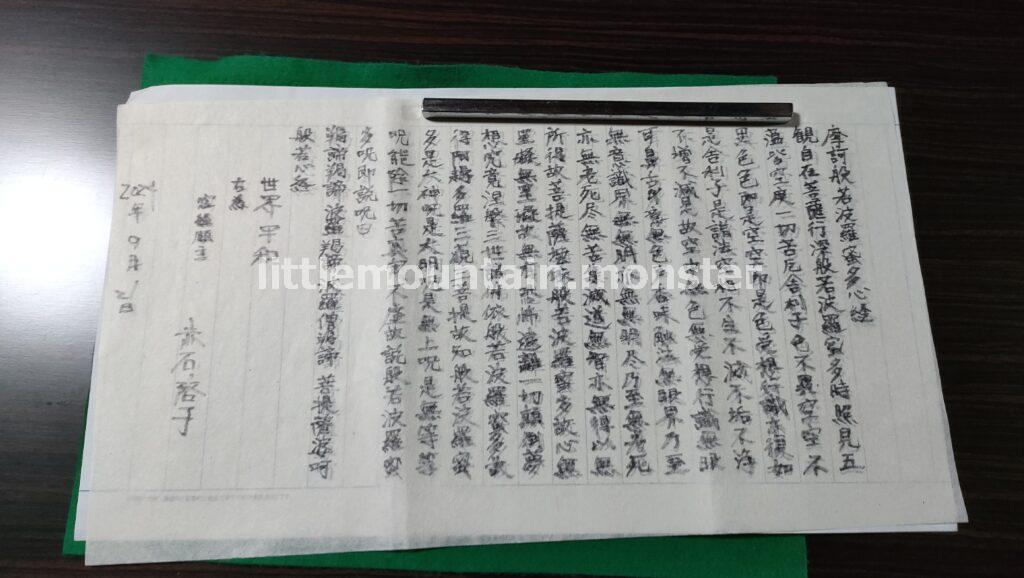 摩訶般若波羅蜜多心経
観自在菩薩行深般若波羅蜜多時照見五
蘊皆空度一切苦厄舎利子色不異空空不
異色色即是空空即是色受想行識亦復如
是舎利子是諸法空相不生不滅不垢不浄
不増不減是故空中無色無受想行識無眼
耳鼻舌身意無色声香味触法無眼界乃至
無意識界無無明亦無無明尽乃至無老死
亦無老死尽無苦集滅道無智亦無得以無
所得故菩提薩埵依般若波羅蜜多故心無
罣礙無罣礙故無有恐怖遠離一切顛倒夢
想究竟涅槃三世諸佛依般若波羅蜜多故
得阿耨多羅三藐三菩提故知般若波羅蜜
多是大神呪是大明呪是無上呪是無等等
呪能除一切苦真実不虚故説般若波羅蜜
多呪即説呪曰
羯諦羯諦波羅羯諦波羅僧羯諦菩提薩婆呵
般若心経
世界平和
右為
写経願主
2024年9月21日
littlemountain.monster